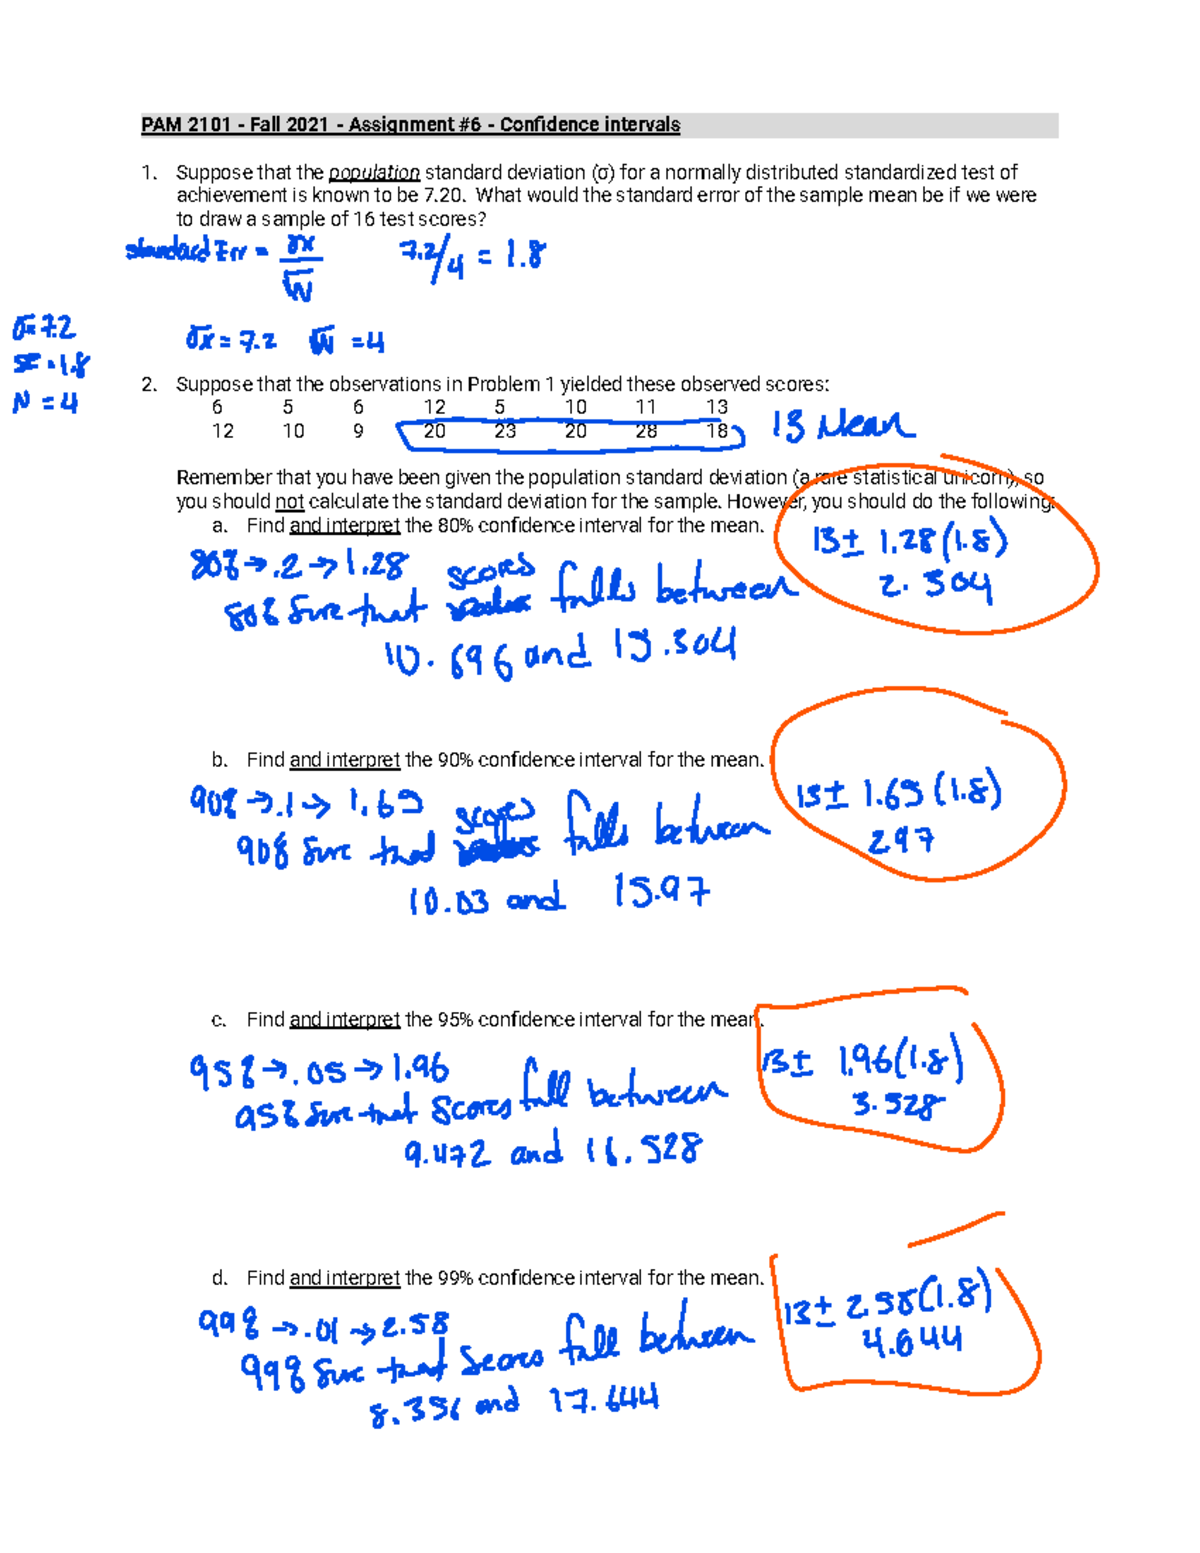 PAM 2101 - Fall 2021 - Assignment #6 - Confidence intervals
1. Suppose that the population standard deviation (σ) for a normally distributed standardized test of
achievement is known to be 7.20. What would the standard error of the sample mean be if we were
to draw a sample of 16 test scores?
standard Err = σx / √N 7.2/4 = 1.8
σ=7.2
SE=1.8
N=4
σx = 7.2 √N = 4
2. Suppose that the observations in Problem 1 yielded these observed scores:
6 5 6 12 5 10 11 13
12 10 9 20 23 20 28 18
13 Mean
Remember that you have been given the population standard deviation (a rare statistical unicorn), so
you should not calculate the standard deviation for the sample. However, you should do the following:
a. Find and interpret the 80% confidence interval for the mean.
13 ± 1.28(1.8)
2.304
80% → .2 → 1.28
80% sure that scores falls between
10.696 and 15.304
b. Find and interpret the 90% confidence interval for the mean.
13 ± 1.65(1.8)
297
90% → .1 → 1.65
90% sure that scores falls between
10.03 and 15.97
c. Find and interpret the 95% confidence interval for the mean.
13 ± 1.96(1.8)
3.528
95% → .05 → 1.96
95% sure that scores fall between
9.472 and 16.528
d. Find and interpret the 99% confidence interval for the mean.
13 ± 2.58(1.8)
4.644
99% → .01 → 2.58
99% sure that scores fall between
8.356 and 17.644